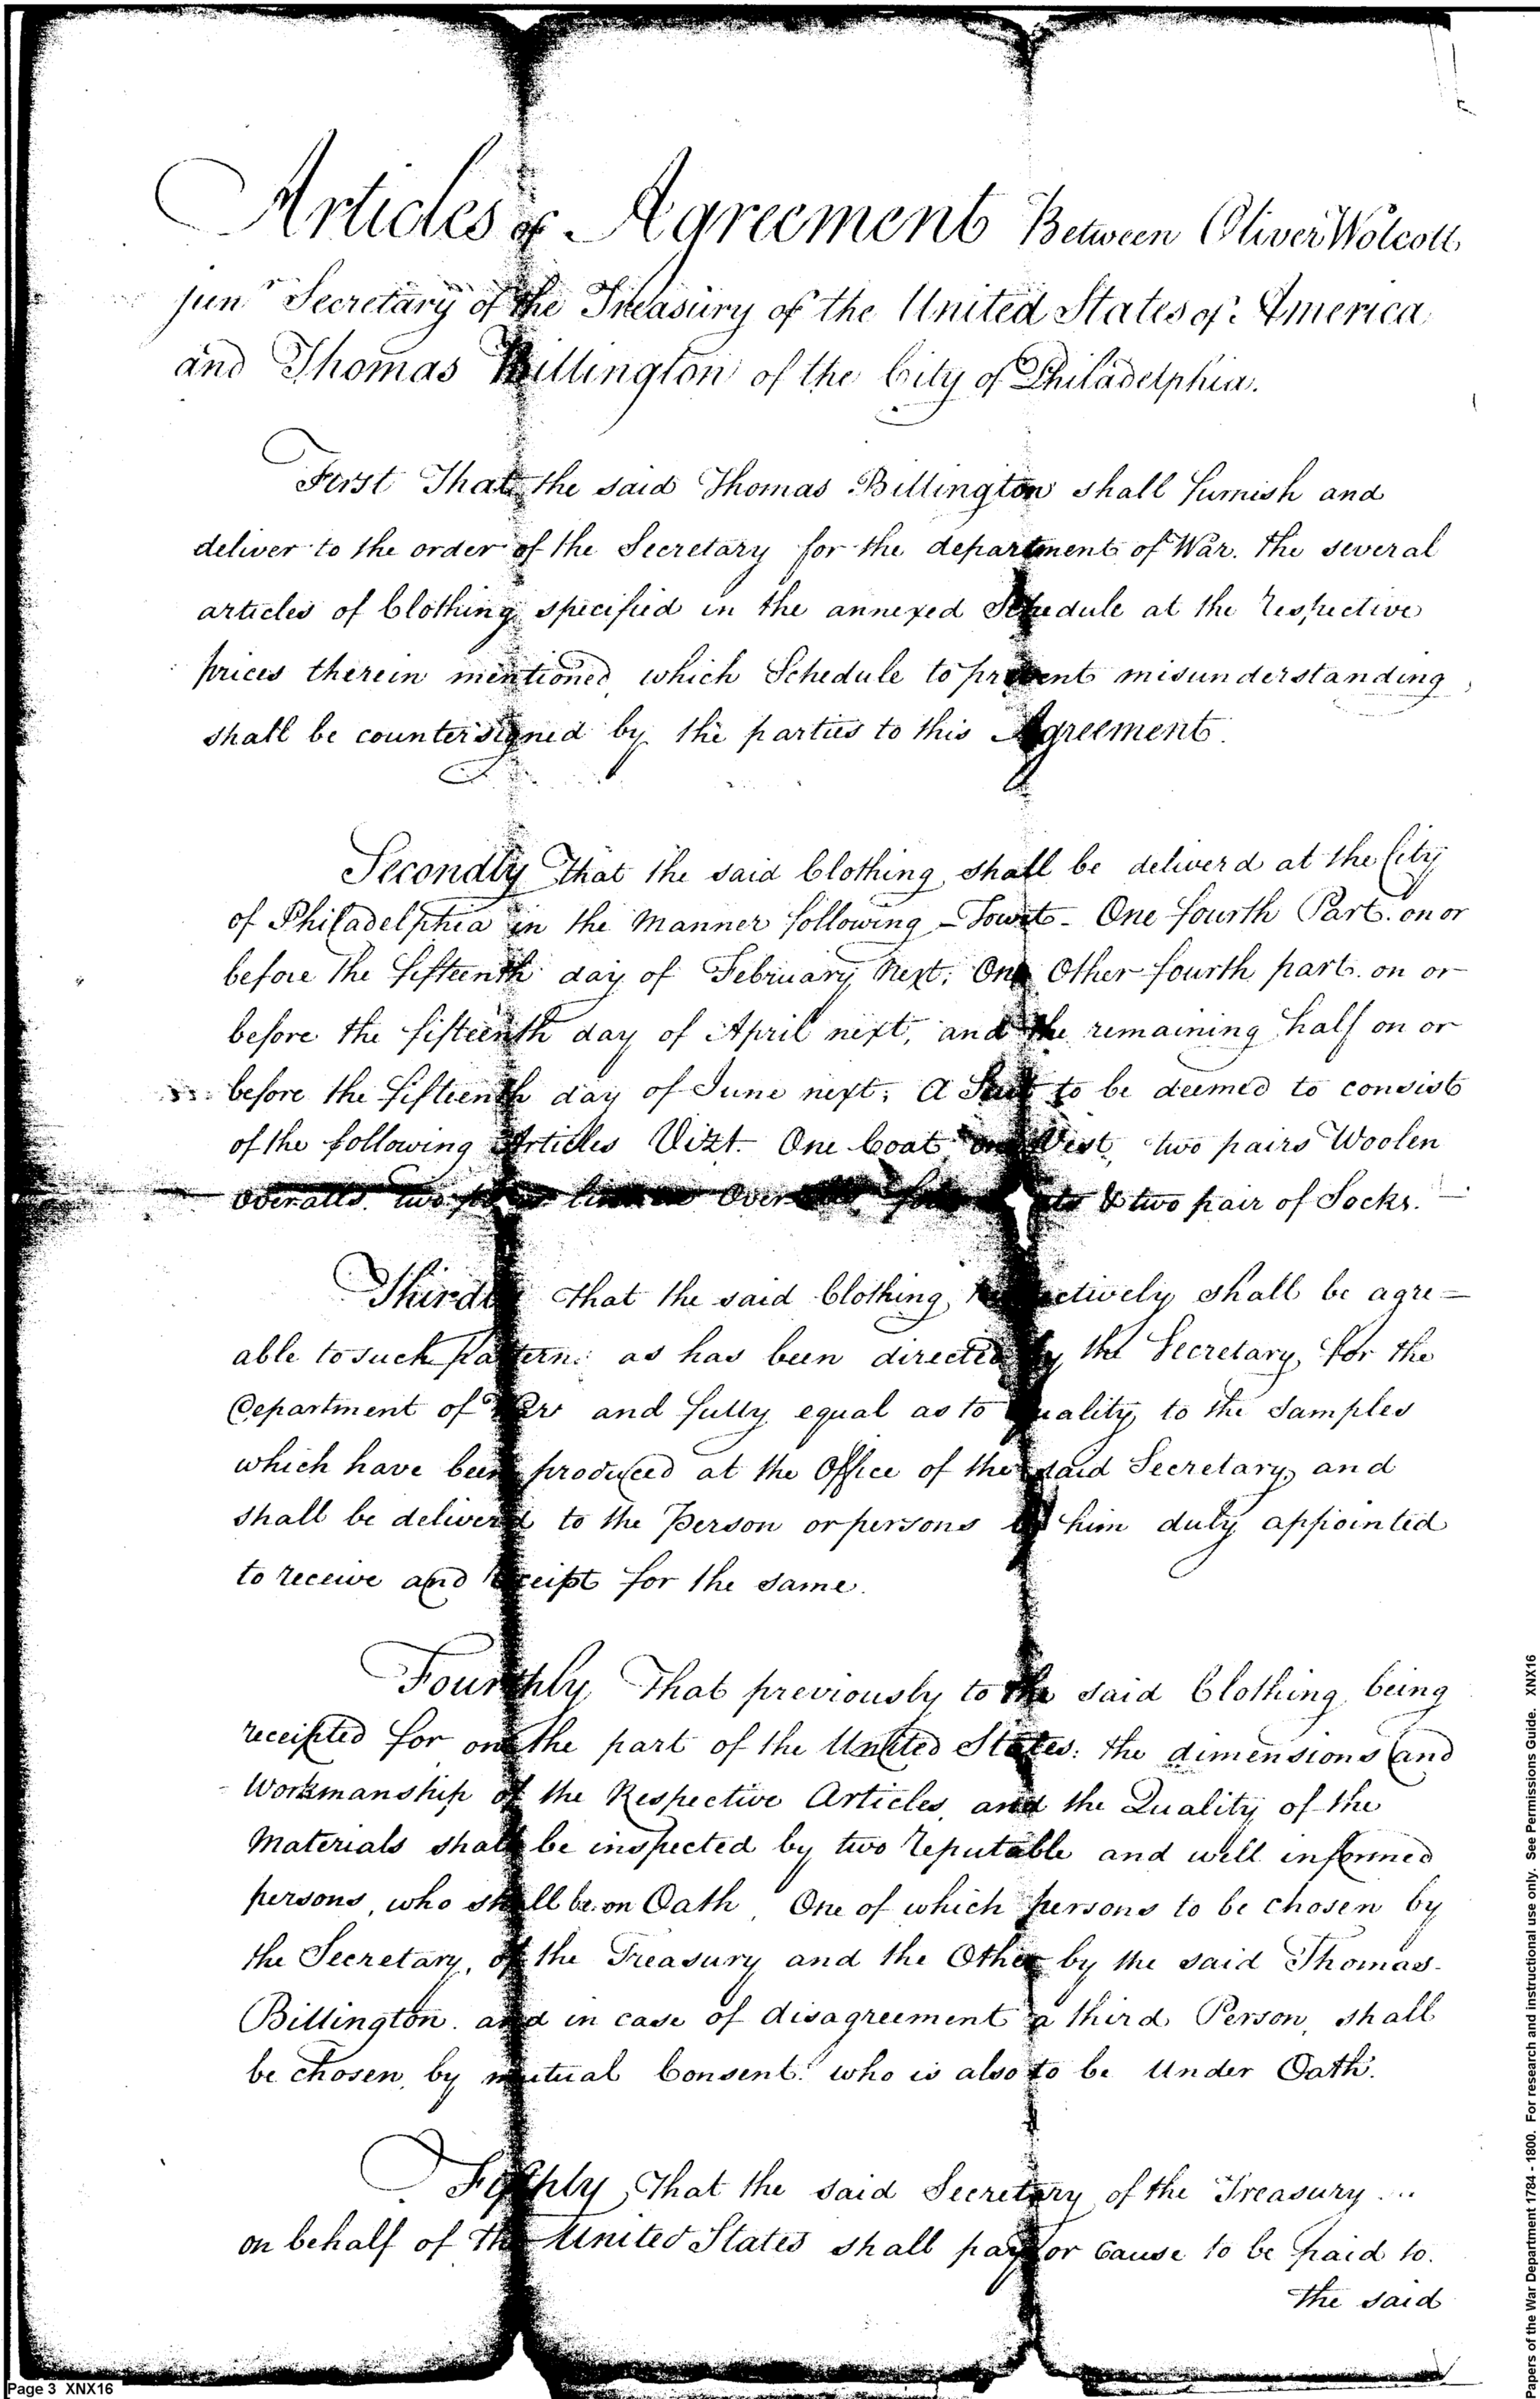 Articles of Agreement Between Oliver Wolcott
junr Secretary of the Treasury of the United States of America
and Thomas Billington of the City of Philadelphia.
First That the said Thomas Billington shall furnish and
deliver to the order of the Secretary for the department of War. the several
articles of Clothing specified in the annexed Schedule at the respective
prices therein mentioned, which Schedule to prevent misunderstanding
shall be countersigned by the parties to this Agreement.
Secondly That the said Clothing shall be deliverd at the City
of Philadelphia in the Manner following - Towit - One fourth Part. on or
before the fifteenth day of February Next, One Other fourth part. on or
before the fifteenth day of April next, and the remaining half on or
before the fifteenth day of June next; A Suit to be deemed to consist
of the following Articles Vizt. One Coat, one Vest, two pairs Woolen
overalls. two linnen Over & two pair of Socks.
Thirdly That the said Clothing respectively shall be agre=
able to such pattern: as has been directed by the Secretary for the
Department of War and fully equal as to quality to the Samples
which have been produced at the Office of the said Secretary, and
shall be deliverd to the Person or persons by him duly appointed
to receive and receipt for the same.
Fourthly That previously to the said Clothing being
receipted for on the part of the United States: the dimensions and
Workmanship of the Respective Articles, and the Quality of the
Materials shall be inspected by two reputable and well informed
persons, who shall be on Oath, One of which persons to be chosen by
the Secretary, of the Treasury and the Other by the said Thomas
Billington. and in case of disagreement a third Person, shall
be chosen, by mutual Consent. who is also to be Under Oath.
Fifthly, That the said Secretary of the Treasury ...
on behalf of the United States shall pay or cause to be paid to.
the said
Page 3 XNX16
Papers of the War Department 1784 - 1800. For research and instructional use only. See Permissions Guide. XNX16